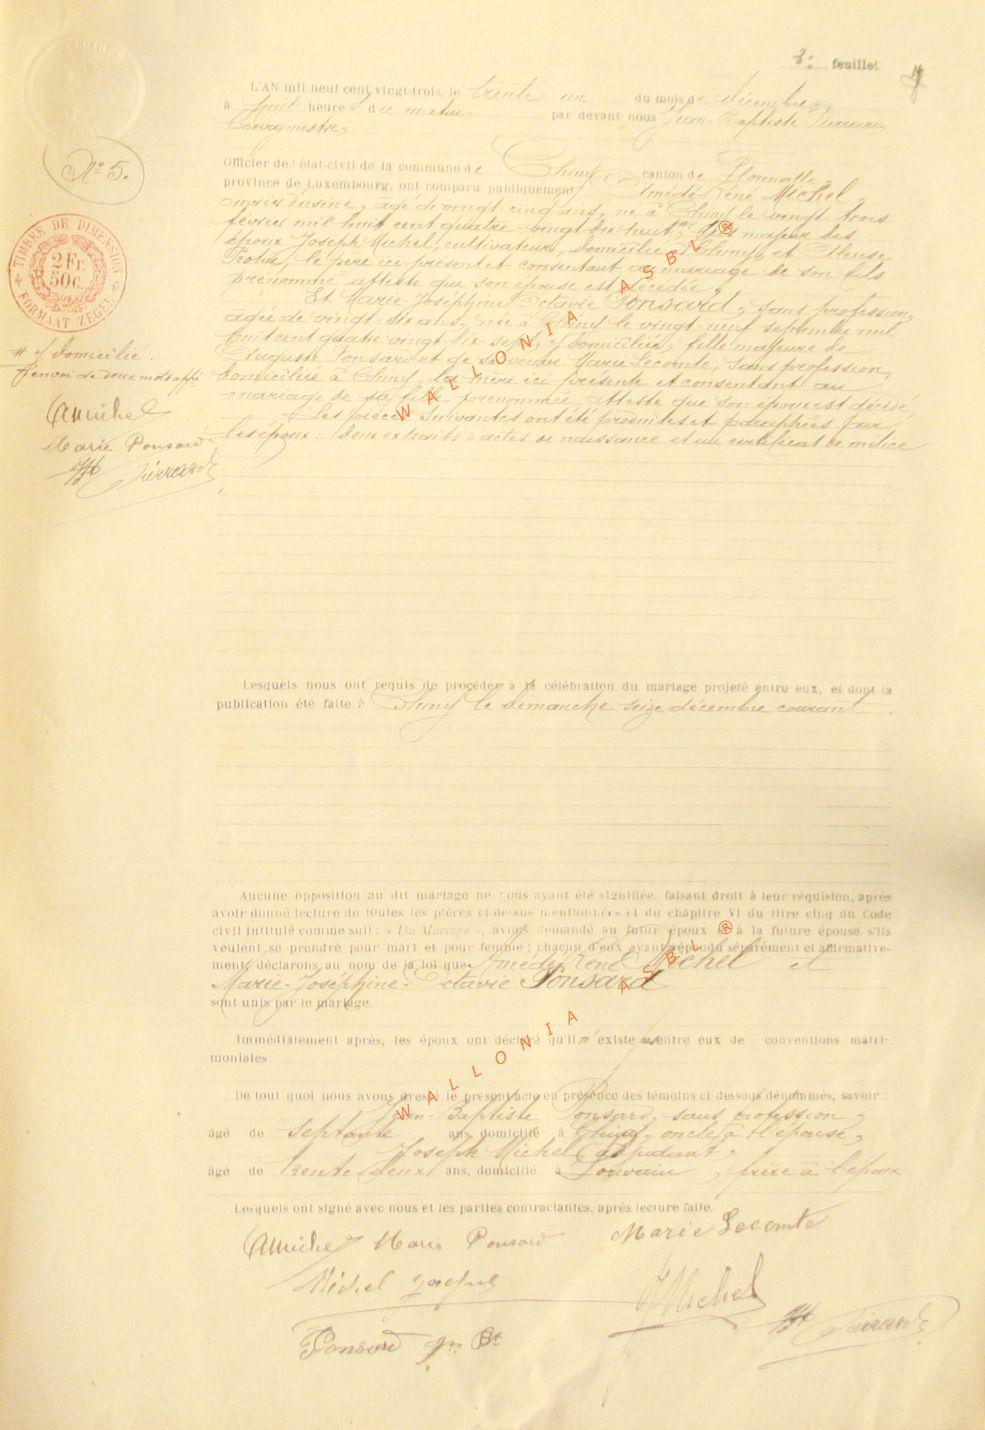 3e feuillet
L'AN mil neuf cent vingt-trois, le trente-un du mois de décembre,
à huit heures du matin, par devant nous Jean-Baptiste Pierrard,
bourgmestre,
Officier de l'état-civil de la commune de Chiny, canton de Florenville,
province de Luxembourg, ont comparu publiquement Amédé René Michel,
ouvrier d'usine, âgé de vingt-cinq ans, né à Chiny le vingt trois
février mil huit cent quatre-vingt dix-huit, fils majeur des
époux Joseph Michel, cultivateur, domicilié à Chiny, et
le père ici présent et consentant au mariage de son fils
prénommé atteste que son épouse est décédée,
Et Marie-Joséphine-Octavie Ponsard, sans profession,
âgée de vingt-six ans, née à Chiny le vingt-neuf septembre mil
huit cent quatre vingt dix-sept, y domiciliée, fille majeure de
Auguste Ponsard et de sa veuve Marie Lecomte, sans profession,
domiciliée à Chiny, la mère ici présente et consentant au
mariage de sa fille prénommée, atteste que son époux est décédé,
Les pièces suivantes ont été produites et paraphées par
les époux : deux extraits d'actes de naissance et un certificat de milice
No 5.
TIMBRE DE DIMENSION
2 Fr.
50c.
FORMAAT ZEGEL
# y domicilié.
Renvoi de deux mots app
AMichel
Marie Ponsard
Pierrard
Lesquels nous ont requis de procéder à la célébration du mariage projeté entre eux, et dont la
publication été faite à Chiny le dimanche seize décembre courant.
Aucune opposition au dit mariage ne nous ayant été signifiée, faisant droit à leur réquision, après
avoir donné lecture de toutes les pièces ci-dessus mentionnées et du chapitre VI du titre cinq du Code
civil intitulé comme suit : « Du Mariage », avons demandé au futur époux et à la future épouse s'ils
veulent se prendre pour mari et pour femme ; chacun d'eux ayant répondu séparément et affirmative-
ment, déclarons au nom de la loi que Amédé René Michel et
Marie-Joséphine-Octavie Ponsard
sont unis par le mariage.
Immédiatement après, les époux ont déclaré qu'il n'existe entre eux de conventions matri-
moniales
De tout quoi nous avons dressé le présent acte en présence des témoins ci dessous dénommés, savoir :
Jean-Baptiste Ponsard, sans profession,
âgé de septante ans, domicilié à Chiny, oncle à l'épouse,
Joseph Michel, adjudant,
âgé de trente deux ans, domicilié à Louvain, frère à l'époux
Lesquels ont signé avec nous et les parties contractantes, après lecture faite.
AMichel Marie Ponsard Marie Lecomte
Michel Joseph JMichel
Ponsard Jn Bte Pierrard
WALLONIA ASBL ®
WALLONIA ASBL ®